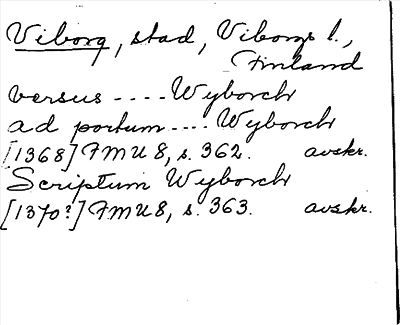 Viborg, stad, Viborgs l.,
Finland
versus ---- Wyborch
ad portum ---- Wyborch
[1368] FMU 8, s. 362. avskr.
Scriptum Wyborch
[1370?] FMU 8, s. 363. avskr.